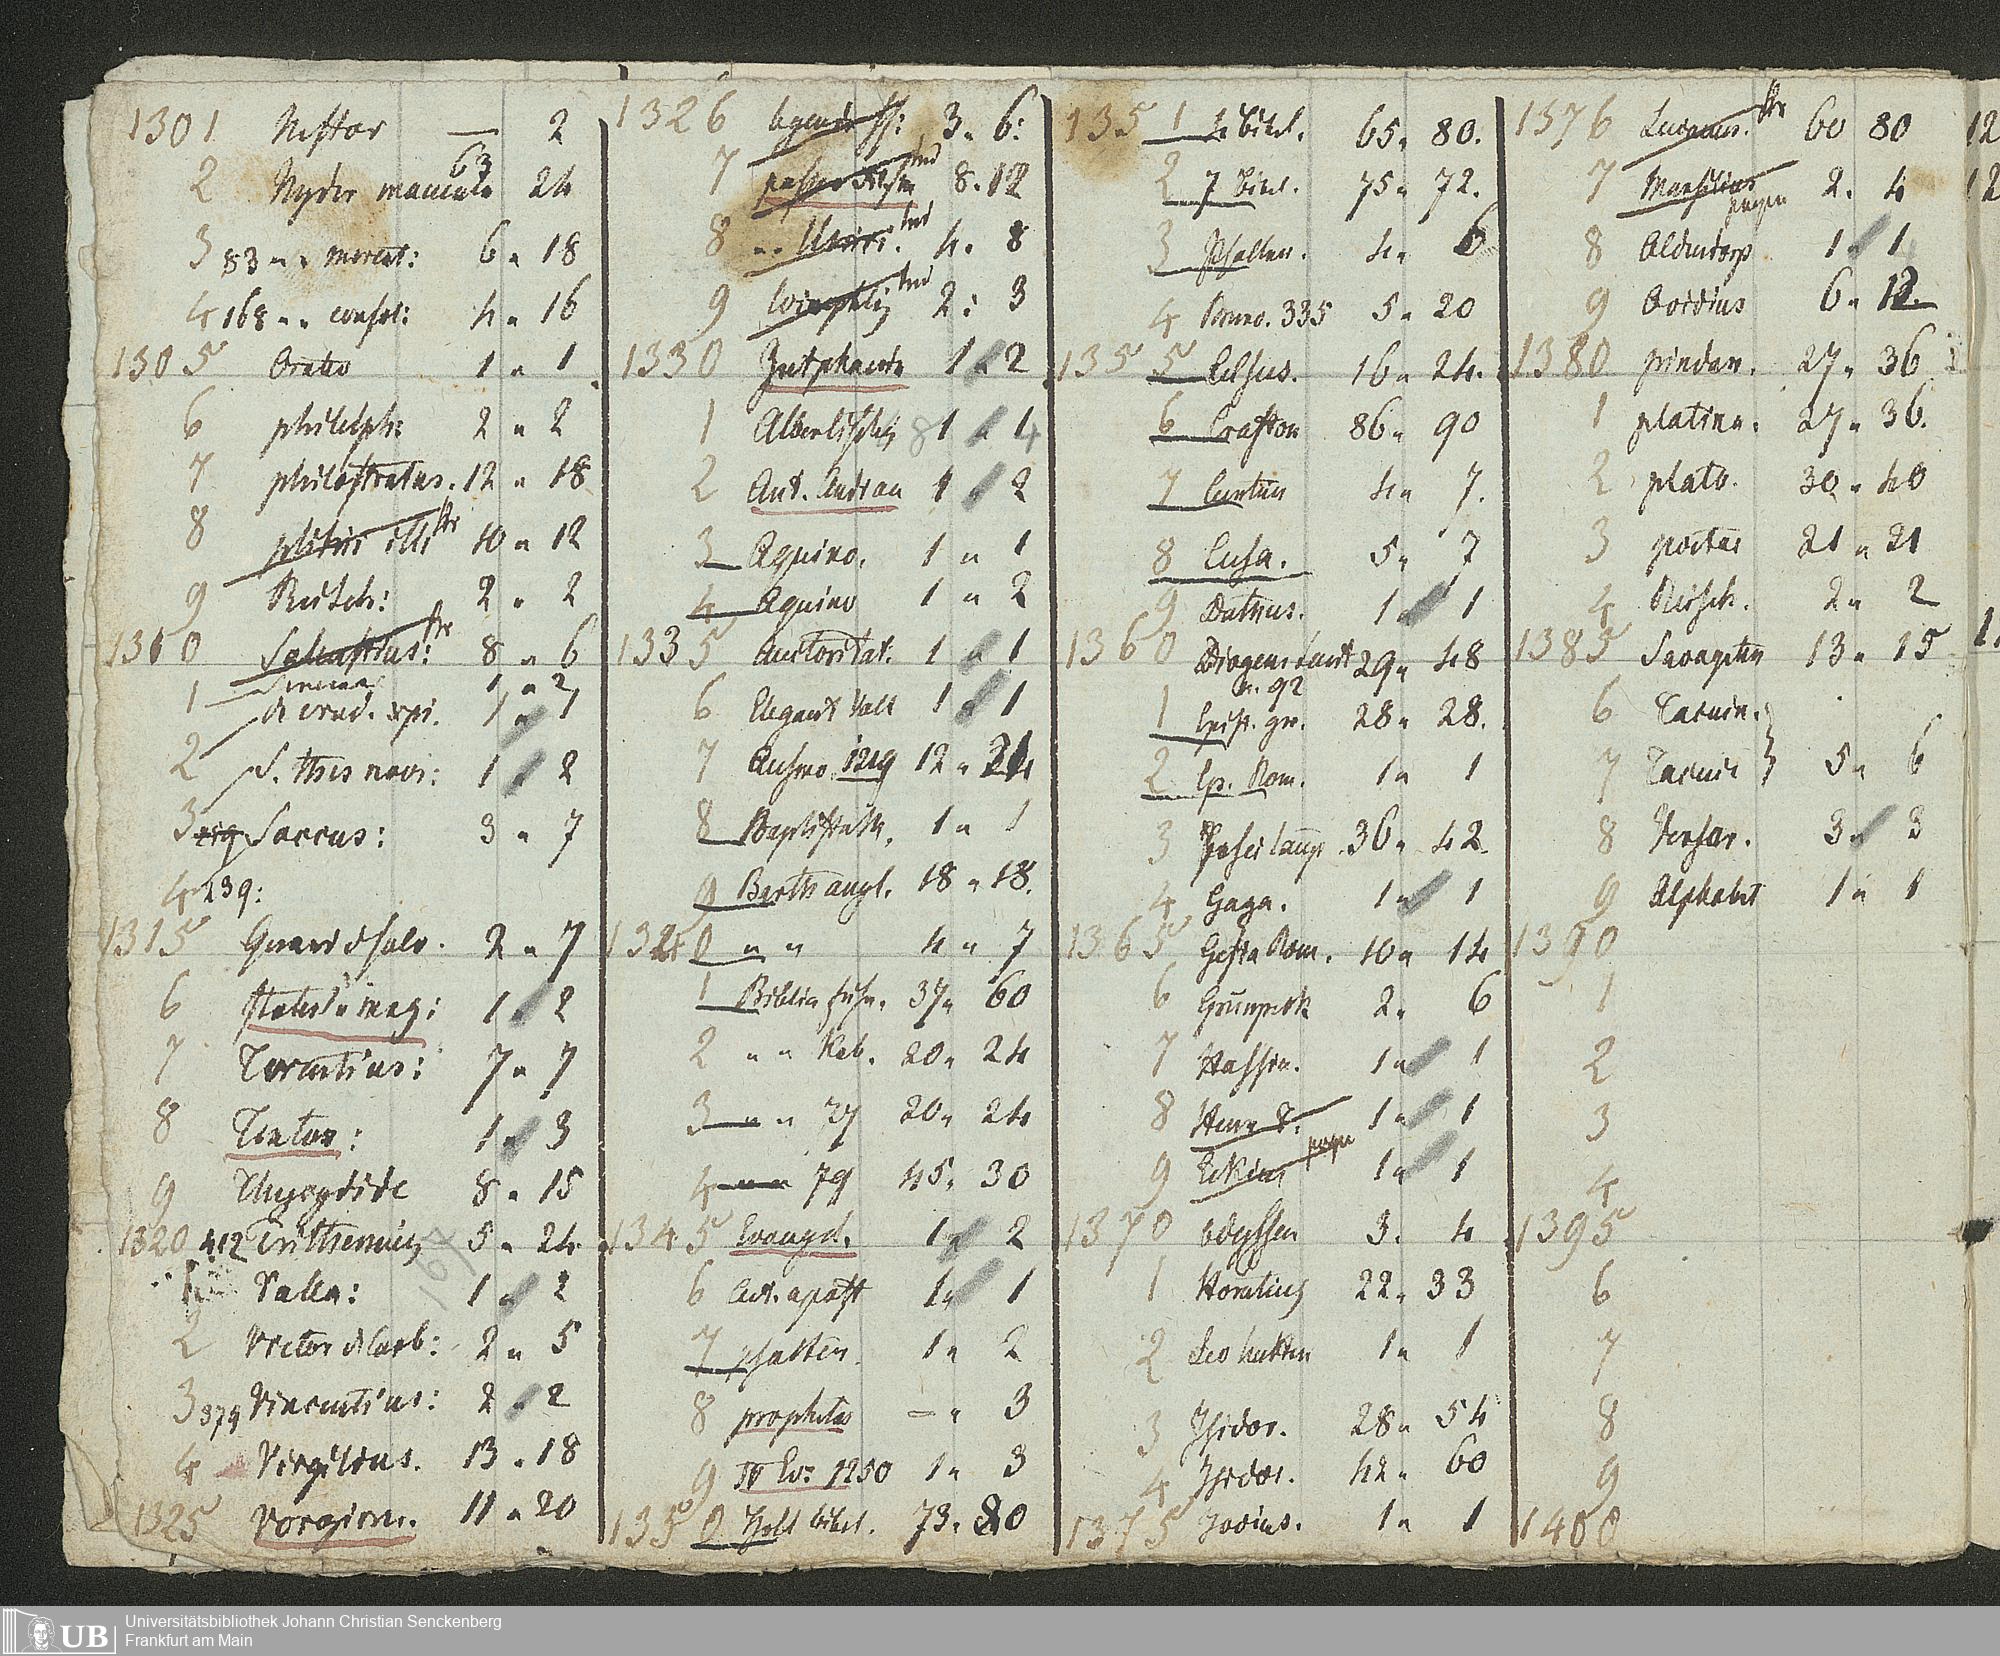 1301 Nestor — 2
2 Nyder manuale 63 24
3 83 " " mercat: 6 " 18
4 168 " " consol: 4 " 16
1305 Oratio 1 " 1
6 philelph: 2 " 2
7 philostratus. 12 " 18
8 plinii illi 10 " 12
9 Reisch: 2 " 2
1310 Salustius: 8 " 6
1 1 " 2
de erud. xpi. 1 " 1
2 S. thes novi: 1 " 2
3 Soccus: 3 " 7
4 239:
1315 2 " 7
6 mag: 1 " 2
7 Terentius: 7 " 7
8 Textor: 1 " 3
9 Thucydide 8 " 15
1320 412 Trithemius 5 " 24
1 Valla: 1 " 2
2 Victor d Carb: 2 " 5
3 379 Vincentius: 2 " 2
4 Virgilius. 13 " 18
1325 Voragine. 11 " 20
1326 legende ss: 3 " 6:
7 8 " 12
8 " " 4 " 8
9 2 : 3
1330 Zutphania 1 " 2
1 8 1 " 4
2 Ant. Andrae 1 " 2
3 Aquino. 1 " 1
4 Aquino 1 " 2
1335 Auctoritat. 1 " 1
6 Elegant Vall 1 " 1
7 Ausmo 1219 12 " 24
8 Baptista M. 1 " 1
9 Barth angl. 18 " 18.
1340 " " 4 " 7
1 Biblia 37 " 60
2 " " Kob. 20 " 24
3 " " 20 " 24
4 " " 79 45 " 30
1345 Evangel. 1 " 2
6 Act. apost 1 " 1
7 psalter. 1 " 2
8 prophetas — " 3
9 IV Ev: 1250 1 " 3
1350 Holl bibel. 73 " 80
1351 bibel. 65 " 80.
2 7 bibel. 75 " 72.
3 Psalter. 4 " 6
4 Bruno. 335 5 " 20
1355 Celsus. 16 " 24.
6 Craston 86 " 90
7 Curtius 4 " 7.
8 Cusa. 5 " 7
9 Dathus. 1 " 1
1360 Diogenes laert 29 " 48
n. 92
1 Epist. gr. 28 " 28.
2 Ep. Rom. 1 " 1
3 36 " 42.
4 Gaga. 1 " 1
1365 Gesta Rom. 10 " 14
6 Grünpeck 2 " 6
7 Hassia. 1 " 1
8 1 " 1
9 1 " 1
1370 Odyssea 3 " 4
1 Horatius 22 " 33
2 Leo hutten 1 " 1
3 Isidor. 28 " 54
4 Isidor. 42 " 60
1375 Jovius. 1 " 1
1376 Lucanus. 60 80
7 Marsilius 2 " 4
8 Aldendorp 1 " 1
9 Ovidius 6 " 12
1380 pindar. 27 " 36
1 platina. 27 " 36.
2 plato. 30 " 40
3 poetae 21 " 21
4 Reisch. 2 " 2
1385 13 " 15
6 Tacuin.
7 Tacuin 5 " 6
8 Versor. 3 " 3
9 Alphabet 1 " 1
1390
1
2
3
4
1395
6
7
8
9
1400
12
12
Universitätsbibliothek Johann Christian Senckenberg
Frankfurt am Main
UB